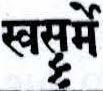 स्वसॄर्मे